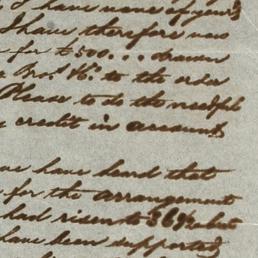 I have none of yours
I have therefore now
for £500... drawn
No. to the order
Please to do the needful
credit in account
we have heard that
for the arrangement
had risen to but
have been supported